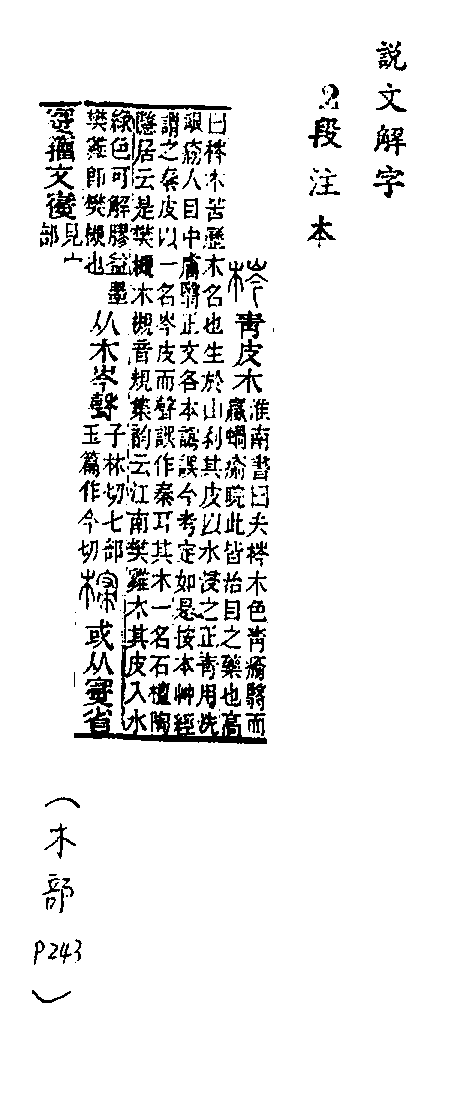 說文解字
2段注本
梣青皮木淮南書曰夫梣木色青瘉翳而
蠃蝸瘉睆此皆治目之藥也高
曰梣木苦歷木名也生於山剥其皮以水浸之正青用洗
眼瘉人目中膚翳正文各本譌誤今考定如是按本艸經
謂之秦皮以一名岑皮而聲誤作秦耳其木一名石檀陶
隱居云是樊槻木槻音規集韵云江南樊雞木其皮入水
綠色可解膠益墨
樊雞卽樊槻也
从木岑聲子林切七部
玉篇作今切
或从寑省
籒文寑見宀
部
(木部
P243
)